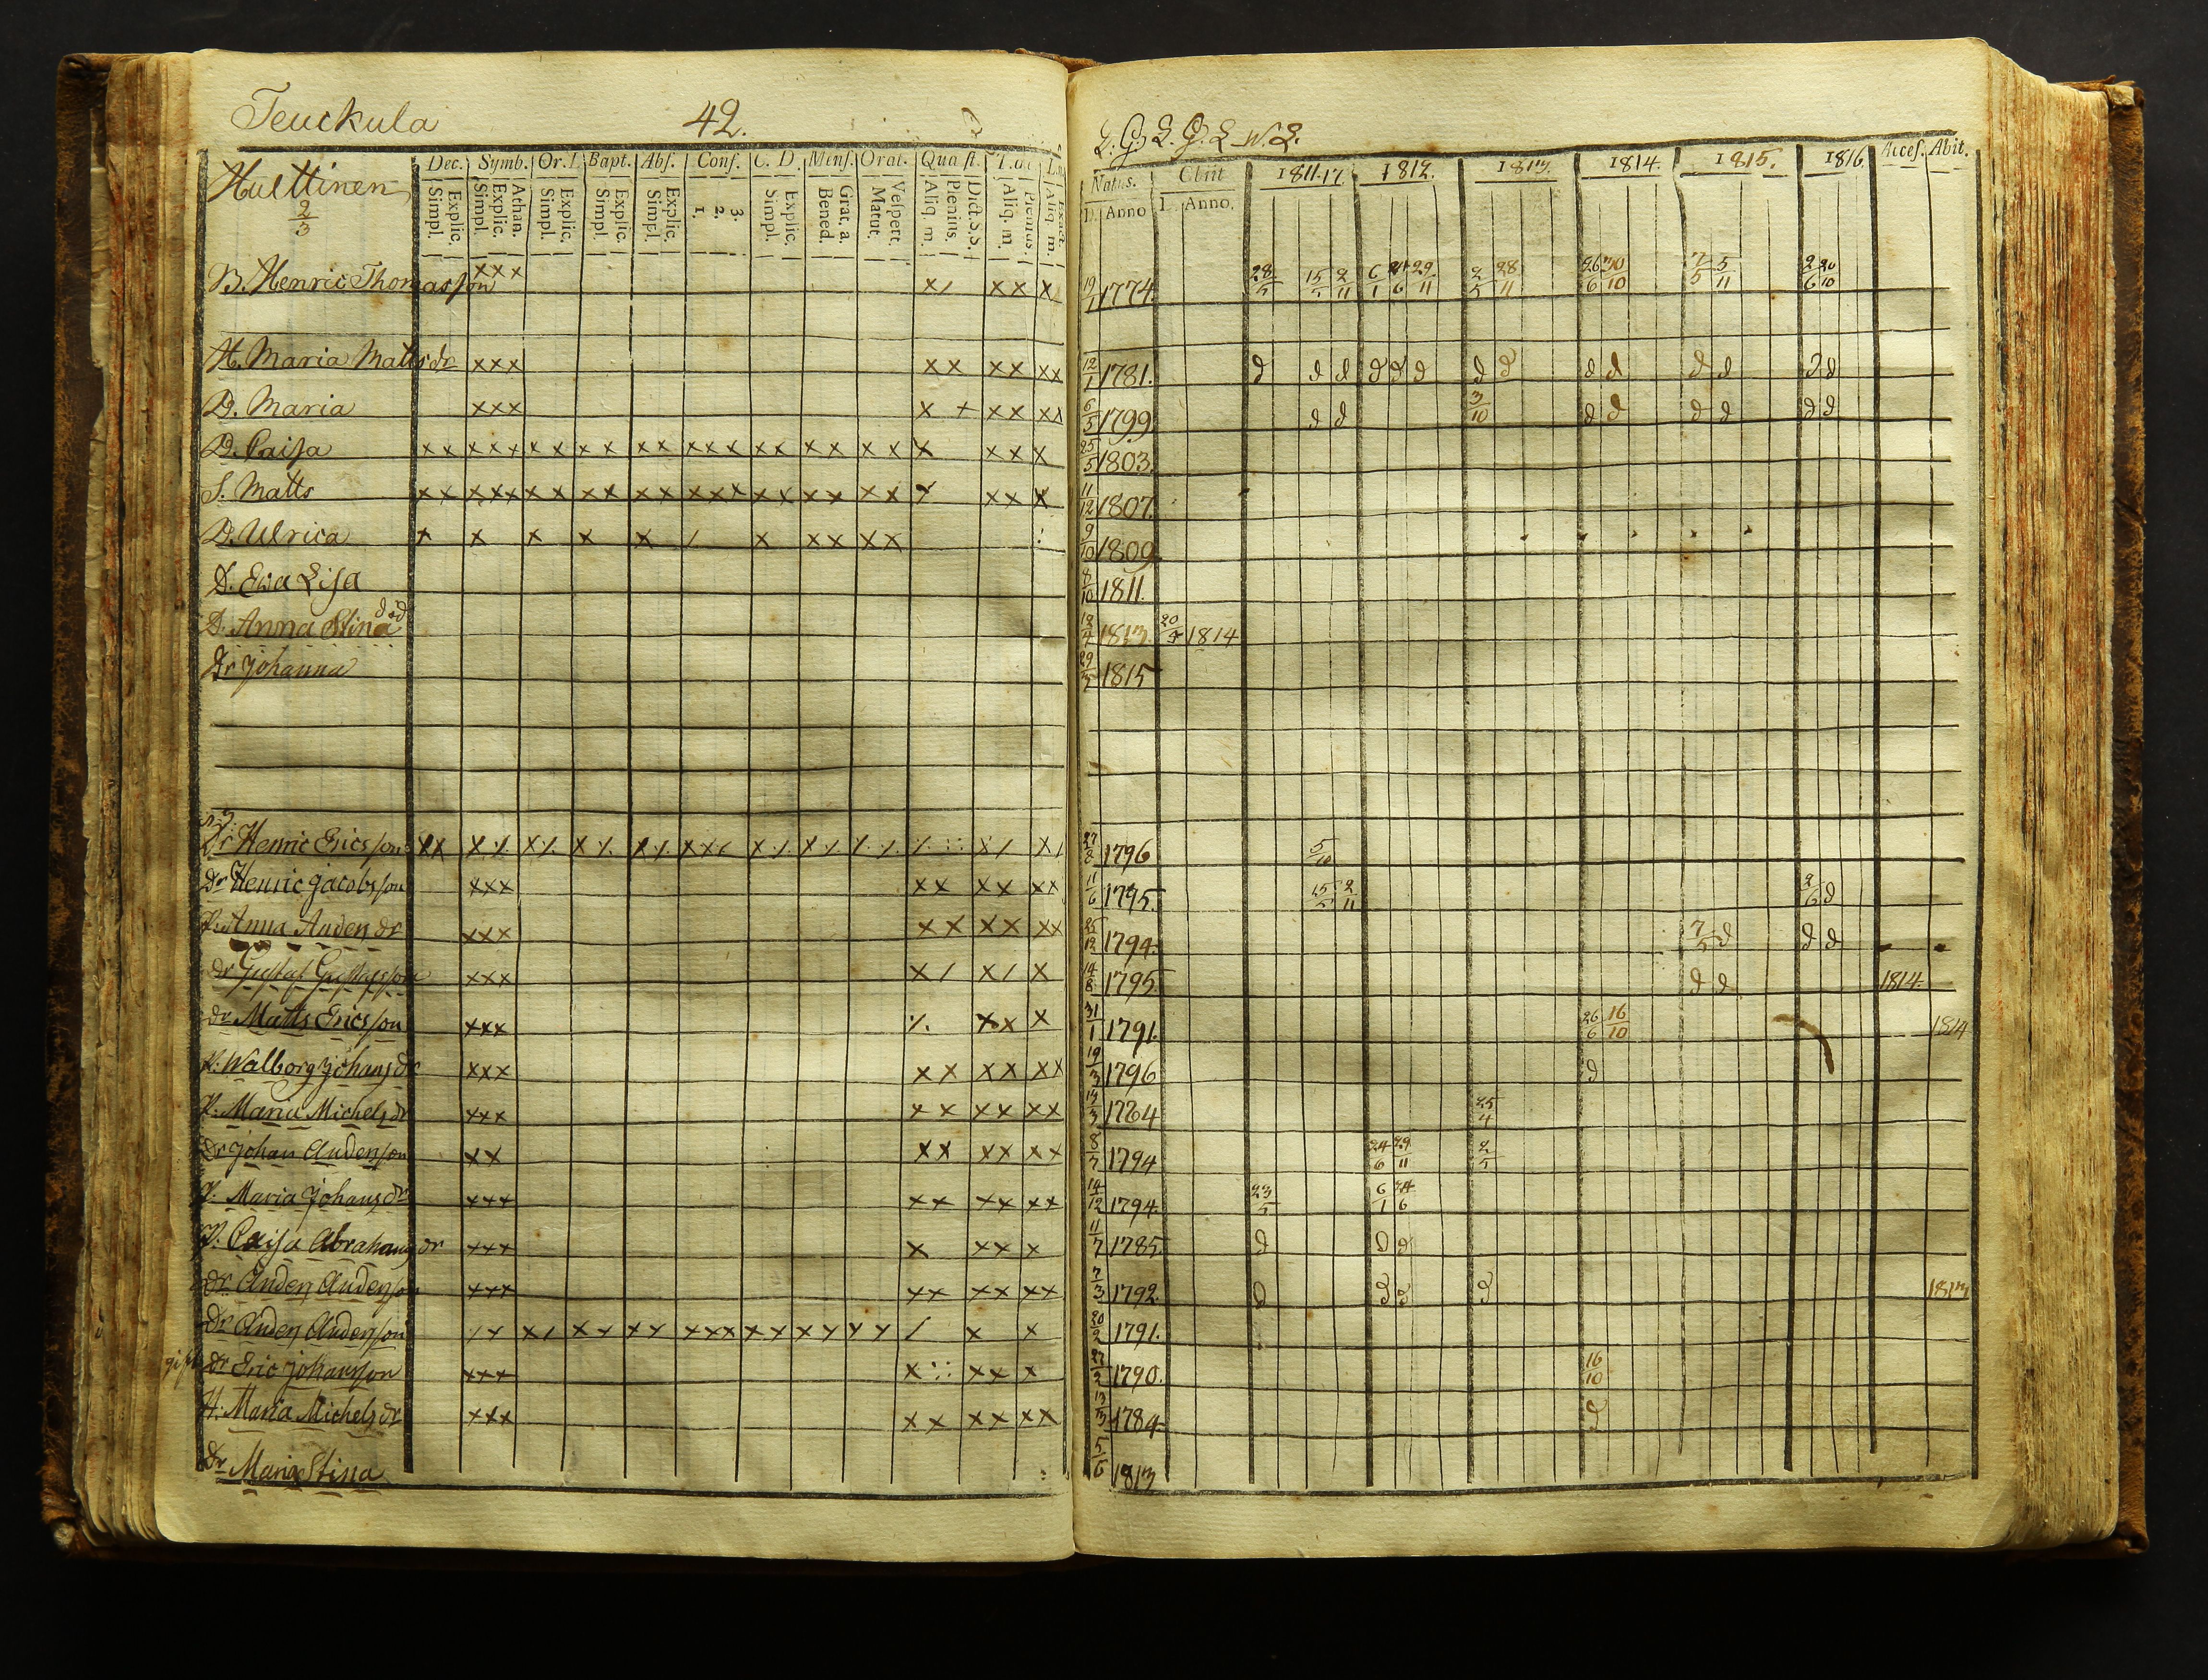 Teuckula 42.
Hulttinen
2/3
Dec. Symb. Or. D. Bapt. Abs. Conf. C. D. Mens. Orat. Quæst.
Explic. Simpl. Athan. Explic. Simpl. Explic. Simpl. Explic. Simpl. Explic. Simpl. 3. 2. 1. Explic. Simpl. Grat. a. Bened. Vespert. Matut. Dict. S.S. Plenius. Aliq. m. Plenius. Aliq. m. Aliq. m.
Natus. Obiit 1811. 1812. 1813. 1814. 1815. 1816. Acces. Abit.
D. Anno Anno.
B. Henric Thomasson xxx x/ xx x 19/1 1774. 28/5 15/5 2/11 6/1 24/6 29/11 2/5 28/11 26/6 30/10 7/5 5/11 2/6 20/10
H. Maria Matts dr xxx xx xx xx 12/1 1781. d d d d d d d d d d d d d d
D. Maria xxx x + xx xx 6/5 1799 d d 3/10 d d d d d d
D. Caisa xx xxx xx xx xx xxx xx xx xx x xx x 25/5 1803.
S. Matts xx xxx xx xx xx xxx xx xx xx x xx x 11/12 1807.
D. Ulrica x x x x x / x xx xx 9/10 1809.
D. Eva Lisa 8/10 1811.
D. Anna Stina död 1813. 1814
Dr Johanna 1815
Dr Henric Ericsson xx 27/8 1796 5/10
Dr Henric Jacobsson xxx xx xx xx 11/6 1795. 15/5 2/11 2/6 d
P. Anna Anders dr xxx xx xx xx 25/12 1794. 7/5 d d d
dr Gustaf Gustafsson xxx x/ x/ x 14/8 1795. d d 1814.
dr Matts Ericsson xxx xx x 31/1 1791. 26/6 16/10 1814
P. Walborg Johans dr xxx xx xx xx 19/3 1796 d
P. Maria Michels dr xxx xx xx xx 25/4
Dr Johan Andersson xx xx xx xx 8/7 1794 24/6 29/11 2/5
P. Maria Johans dr xxx xx xx xx 14/12 1794. 23/5 6/1 24/6
P. Caisa Abrahams dr xxx x xx x 11/7 1785. d d d
dr Anders Andersson xxx xx xx xx 7/3 1792. d d d d 1813
Dr Anders Andersson /x x/ xx xx xxx xx xx xx / x x 20/2 1791.
gift Dr Eric Johansson xxx x xx x 27/2 1790. 16/10
H. Maria Michels dr xxx xx xx xx 13/3 1784. d
Dr Maria Stina 5/6 1813